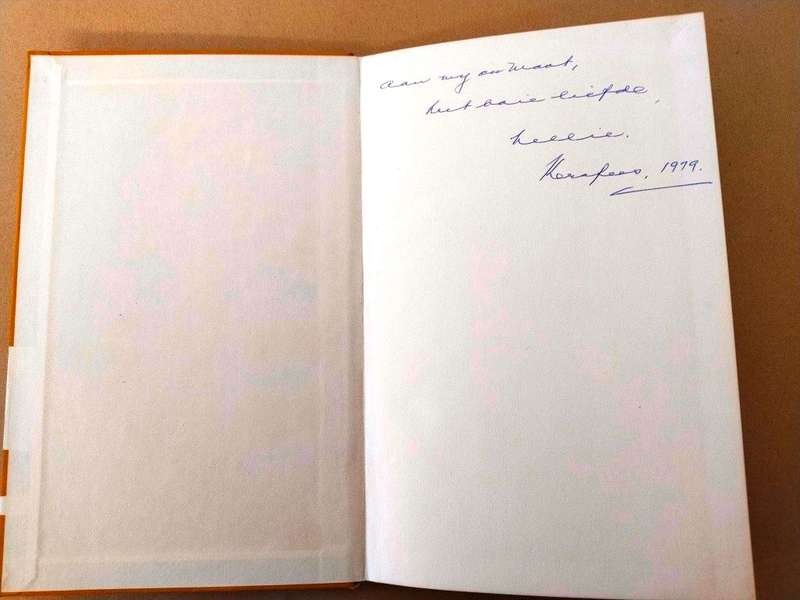 Aan my ou maat,
met baie liefde,
Nellie.
Kersfees, 1979.